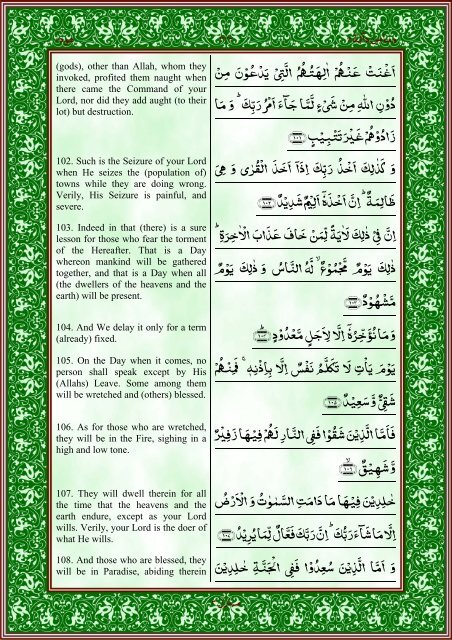 (gods), other than Allah, whom they
invoked, profited them naught when
there came the Command of your
Lord, nor did they add aught (to their
lot) but destruction.
اَغْنَتْ عَنْهُمْ اٰلِهَتُهُمُ الَّتِىْ يَدْعُوْنَ مِنْ
دُوْنِ اللّٰهِ مِنْ شَىْءٍ لَّمَّا جَآءَ اَمْرُ رَبِّكَ ؕ وَ مَا
زَادُوْهُمْ غَيْرَ تَتْبِيْبٍ ﴿۱۰۱﴾
102. Such is the Seizure of your Lord
when He seizes the (population of)
towns while they are doing wrong.
Verily, His Seizure is painful, and
severe.
وَ كَذٰلِكَ اَخْذُ رَبِّكَ اِذَاۤ اَخَذَ الْقُرٰى وَ هِىَ
ظَالِمَةٌ ؕ اِنَّ اَخْذَهٗۤ اَلِيْمٌ شَدِيْدٌ ﴿۱۰۲﴾
103. Indeed in that (there) is a sure
lesson for those who fear the torment
of the Hereafter. That is a Day
whereon mankind will be gathered
together, and that is a Day when all
(the dwellers of the heavens and the
earth) will be present.
اِنَّ فِىْ ذٰلِكَ لَاٰيَةً لِّمَنْ خَافَ عَذَابَ الْاٰخِرَةِ ؕ
ذٰلِكَ يَوْمٌ مَّجْمُوْعٌ ۙ لَّهُ النَّاسُ وَ ذٰلِكَ يَوْمٌ
مَّشْهُوْدٌ ﴿۱۰۳﴾
104. And We delay it only for a term
(already) fixed.
وَ مَا نُؤَخِّرُهٗۤ اِلَّا لِاَجَلٍ مَّعْدُوْدٍ ؕ ﴿۱۰۴﴾
105. On the Day when it comes, no
person shall speak except by His
(Allahs) Leave. Some among them
will be wretched and (others) blessed.
يَوْمَ يَاْتِ لَا تَكَلَّمُ نَفْسٌ اِلَّا بِاِذْنِهٖ ۚ فَمِنْهُمْ
شَقِىٌّ وَّ سَعِيْدٌ ﴿۱۰۵﴾
106. As for those who are wretched,
they will be in the Fire, sighing in a
high and low tone.
فَاَمَّا الَّذِيْنَ شَقُوْا فَفِى النَّارِ لَهُمْ فِيْهَا زَفِيْرٌ
وَّ شَهِيْقٌ ۙ ﴿۱۰۶﴾
107. They will dwell therein for all
the time that the heavens and the
earth endure, except as your Lord
wills. Verily, your Lord is the doer of
what He wills.
خٰلِدِيْنَ فِيْهَا مَا دَامَتِ السَّمٰوٰتُ وَ الْاَرْضُ
اِلَّا مَا شَآءَ رَبُّكَ ؕ اِنَّ رَبَّكَ فَعَّالٌ لِّمَا يُرِيْدُ ﴿۱۰۷﴾
108. And those who are blessed, they
will be in Paradise, abiding therein
وَ اَمَّا الَّذِيْنَ سُعِدُوْا فَفِى الْجَنَّةِ خٰلِدِيْنَ